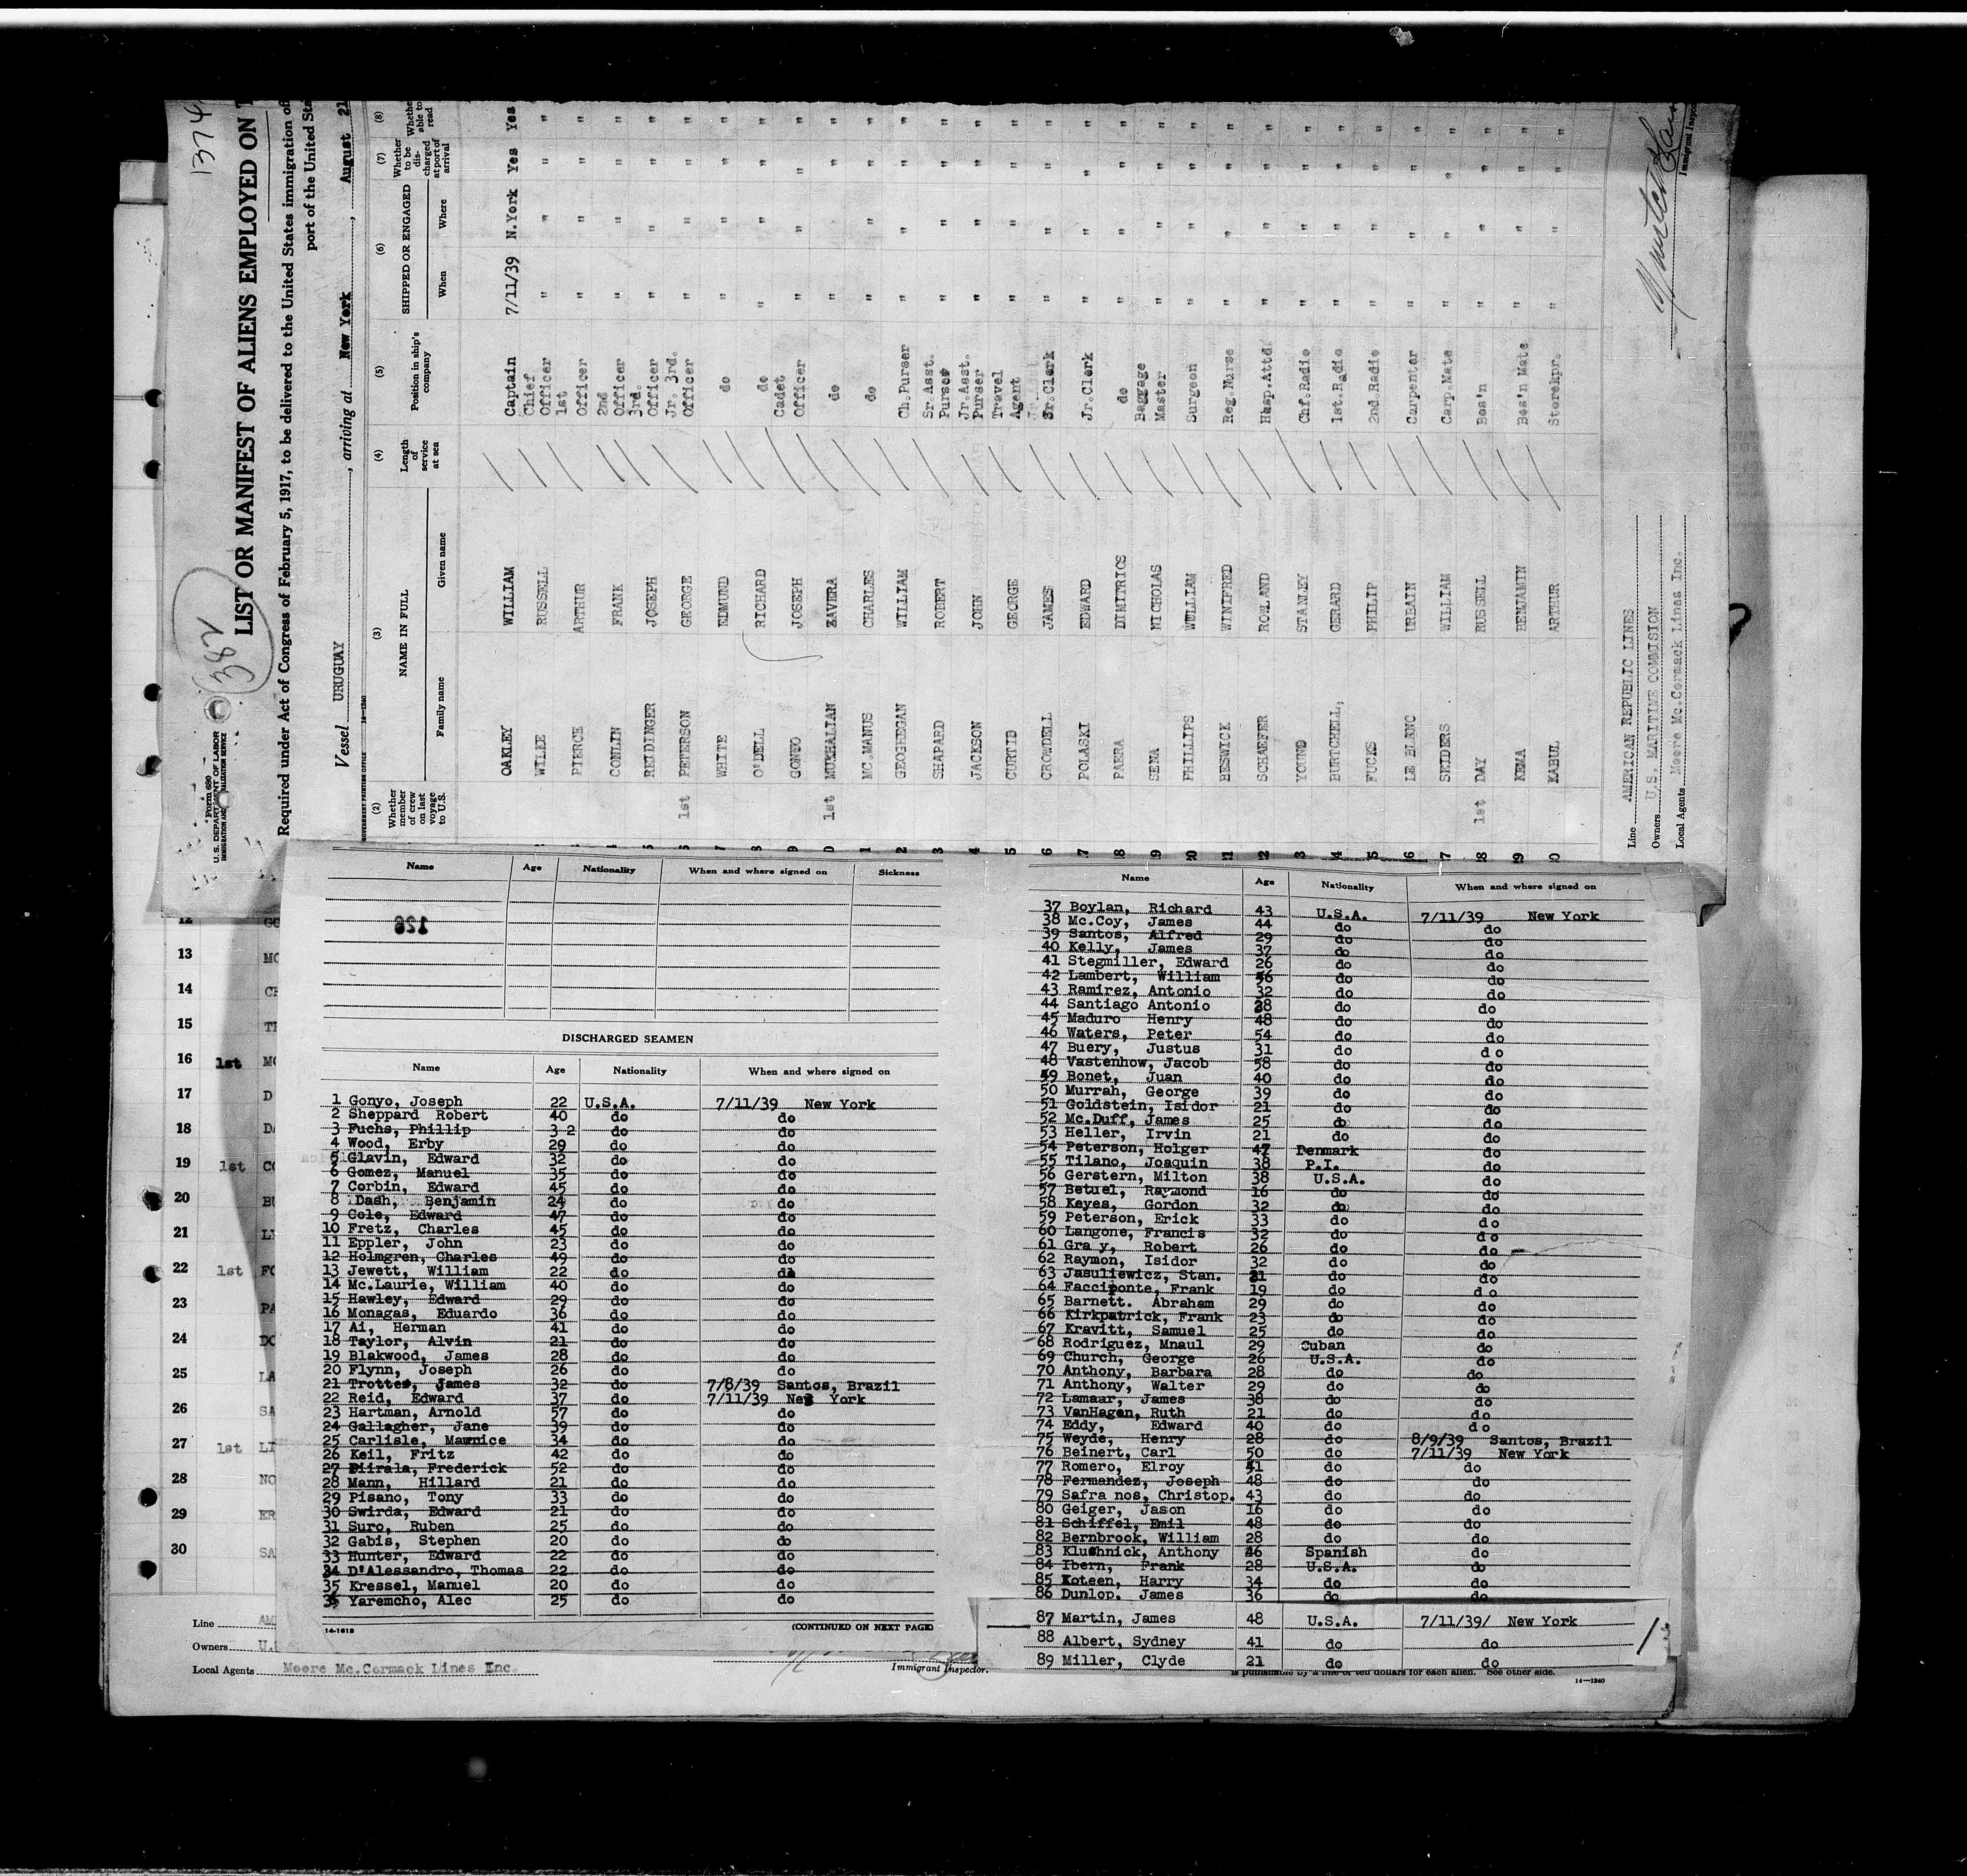 1374
382
Form 680
U. S. DEPARTMENT OF LABOR
LIST OR MANIFEST OF ALIENS EMPLOYED ON
Required under Act of Congress of February 5, 1917, to be delivered to the United States immigration
port of the United
Vessel URUGUAY, arriving at New York, August 21
(2) Whether member of crew on last voyage to U.S. (3) NAME IN FULL Family name Given name (4) Length of service at sea (5) Position in ship's company (6) SHIPPED OR ENGAGED When Where (7) Whether to be discharged at port of arrival (8) Whether able to read
OAKLEY WILLIAM Captain 7/11/39 N.York Yes Yes
WILEE RUSSELL Chief Officer " " " "
PIERCE ARTHUR 1st Officer " " " "
CONLIN FRANK 2nd Officer " " " "
REIDINGER JOSEPH 3rd. Officer " " " "
1st PETERSON GEORGE Jr. 3rd. Officer " " " "
WHITE EDMUND do " " " "
O'DELL RICHARD do " " " "
GONYO JOSEPH Cadet Officer " " " "
1st MUKHALIAN ZAVERA do " " " "
MC.MANUS CHARLES do " " " "
GEOGHEGAN WILLIAM Ch.Purser " " " "
SHAPARD ROBERT Sr.Asst. Purser " " " "
JACKSON JOHN Jr.Asst. Purser " " " "
CURTID GEORGE Travel Agent " " " "
CROWDELL JAMES Sr.Clerk " " " "
POLASKI EDWARD Jr.Clerk " " " "
PAERA DIMITRIOS do " " " "
SENA NICHOLAS Baggage Master " " " "
PHILLIPS WILLIAM Surgeon " " " "
BESWICK WINIFRED Reg.Nurse " " " "
SCHAEFER ROWLAND Hosp.Attd. " " " "
YOUND STANLEY Chf.Radio " " " "
BURTCHELL, GERARD 1st.Radio " " " "
FUCKS PHILIP 2nd.Radio " " " "
LE BLANC URBAIN Carpenter " " " "
SEIDERS WILLIAM Carp.Mate " " " "
1st DAY RUSSELL Bos'n " " " "
KEMA BENJAMIN Bos'n Mate " " " "
KABUL ARTHUR Storekpr. " " " "
Line AMERICAN REPUBLIC LINES
Owners U.S. MARITIME COMMISION
Local Agents Moore Mc.Cormack Lines Inc.
Immigrant
Name Age Nationality When and where signed on Sickness
126
DISCHARGED SEAMEN
Name Age Nationality When and where signed on
1 Gonyo, Joseph 22 U.S.A. 7/11/39 New York
2 Sheppard Robert 40 do do
3 Fuchs, Phillip 3 2 do do
4 Wood, Erby 29 do do
5 Glavin, Edward 32 do do
6 Gomez, Manuel 35 do do
7 Corbin, Edward 45 do do
8 Dash, Benjamin 24 do do
9 Cole, Edward 47 do do
10 Fretz, Charles 45 do do
11 Eppler, John 23 do do
12 Holmgren, Charles 49 do do
13 Jewett, William 22 do do
14 Mc.Laurie, William 40 do do
15 Hawley, Edward 29 do do
16 Monagas, Eduardo 36 do do
17 Ai, Herman 41 do do
18 Taylor, Alvin 21 do do
19 Blakwood, James 28 do do
20 Flynn, Joseph 26 do do
21 Trotter, James 32 do 7/8/39 Santos, Brazil
22 Reid, Edward 37 do 7/11/39 New York
23 Hartman, Arnold 57 do do
24 Gallagher, Jane 39 do do
25 Carlisle, Maurice 34 do do
26 Keil, Fritz 42 do do
27 Piirala, Frederick 52 do do
28 Mann, Hillard 21 do do
29 Pisano, Tony 33 do do
30 Swirda, Edward 21 do do
31 Suro, Ruben 25 do do
32 Gabis, Stephen 20 do do
33 Hunter, Edward 22 do do
34 D'Alessandro, Thomas 22 do do
35 Kressel, Manuel 20 do do
36 Yaremcho, Alec 25 do do
14-1613 (CONTINUED ON NEXT PAGE)
Name Age Nationality When and where signed on
37 Boylan, Richard 43 U.S.A. 7/11/39 New York
38 Mc.Coy, James 44 do do
39 Santos, Alfred 29 do do
40 Kelly, James 37 do do
41 Stegmiller, Edward 26 do do
42 Lambert, William 56 do do
43 Ramirez, Antonio 32 do do
44 Santiago Antonio 28 do do
45 Maduro Henry 48 do do
46 Waters, Peter 54 do do
47 Buery, Justus 31 do do
48 Vastenhow, Jacob 58 do do
49 Bonet, Juan 40 do do
50 Murrah, George 39 do do
51 Goldstein, Isidor 21 do do
52 Mc.Duff, James 25 do do
53 Heller, Irvin 21 do do
54 Peterson, Holger 47 Denmark do
55 Tilano, Joaquin 38 P.I. do
56 Gerstern, Milton 38 U.S.A. do
57 Betuel, Raymond 16 do do
58 Keyes, Gordon 32 do do
59 Peterson, Erick 33 do do
60 Langone, Francis 32 do do
61 Gra y, Robert 26 do do
62 Raymon, Isidor 32 do do
63 Jasuliewicz, Stan. 21 do do
64 Facciponte, Frank 19 do do
65 Barnett. Abraham 29 do do
66 Kirkpatrick, Frank 23 do do
67 Kravitt, Samuel 25 do do
68 Rodriguez, Mnaul 29 Cuban do
69 Church, George 26 U.S.A. do
70 Anthony, Barbara 28 do do
71 Anthony, Walter 29 do do
72 Lamaar, James 38 do do
73 VanHagan, Ruth 21 do do
74 Eddy, Edward 40 do do
75 Weyde, Henry 28 do 8/9/39 Santos, Brazil
76 Beinert, Carl 50 do 7/11/39 New York
77 Romero, Elroy 41 do do
78 Fermandez, Joseph 48 do do
79 Safra nos, Christop. 43 do do
80 Geiger, Jason 16 do do
81 Schiffel, Emil 48 do do
82 Bernbrook, William 28 do do
83 Klushnick, Anthony 46 Spanish do
84 Ibern, Frank 28 U.S.A. do
85 Koteen, Harry 34 do do
86 Dunlop, James 36 do do
87 Martin, James 48 U.S.A. 7/11/39/ New York
88 Albert, Sydney 41 do do
89 Miller, Clyde 21 do do
13 MC
14 CH
15 TH
16 1st MC
17 D
18 DA
19 1st CO
20 BU
21 LY
22 1st FO
23 PA
24 DO
25 LA
26 SA
27 1st LI
28 NO
29 ER
30 SA
Line AM
Owners U.S
Local Agents Moore Mc.Cormack Lines Inc.
Immigrant Inspector.
is punishable by a fine of ten dollars for each alien. See other side.
14-1240